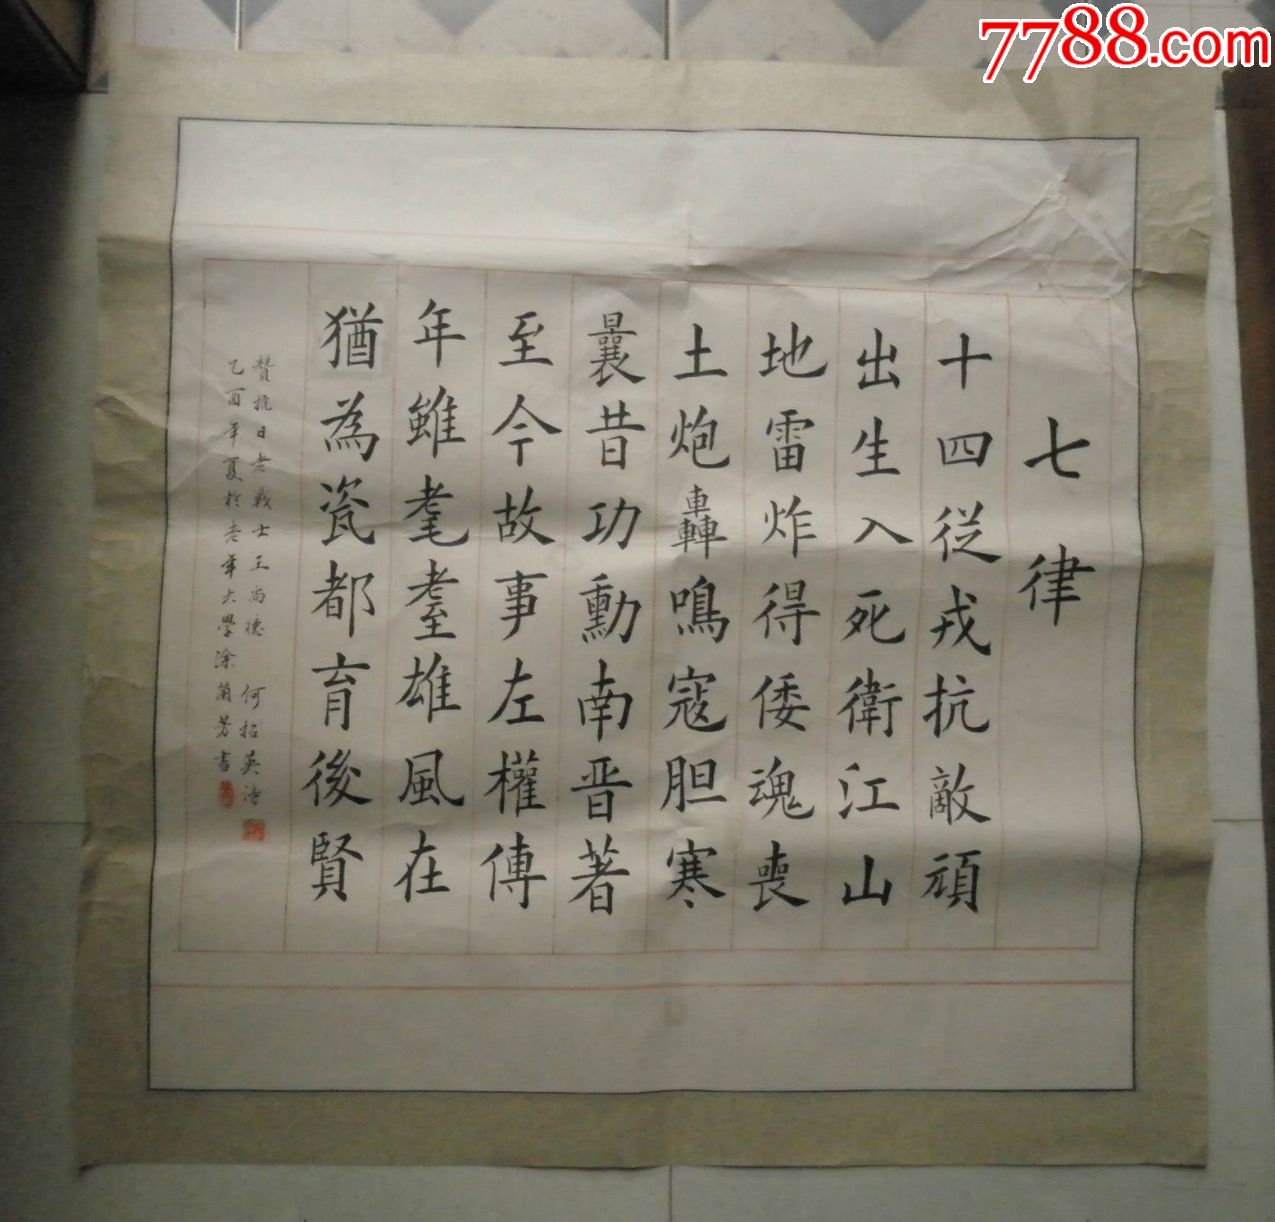 7788.com
七律
十四從戎抗敵頑
出生入死衛江山
地雷炸得倭魂喪
土炮轟鳴寇胆寒
曩昔功勳南晋著
至今故事左權傳
年雖耄耋雄風在
猶為瓷都育後賢
贊抗日老戰士王尚德 何招英詩
乙酉年夏於老年大學涂蘭芳書